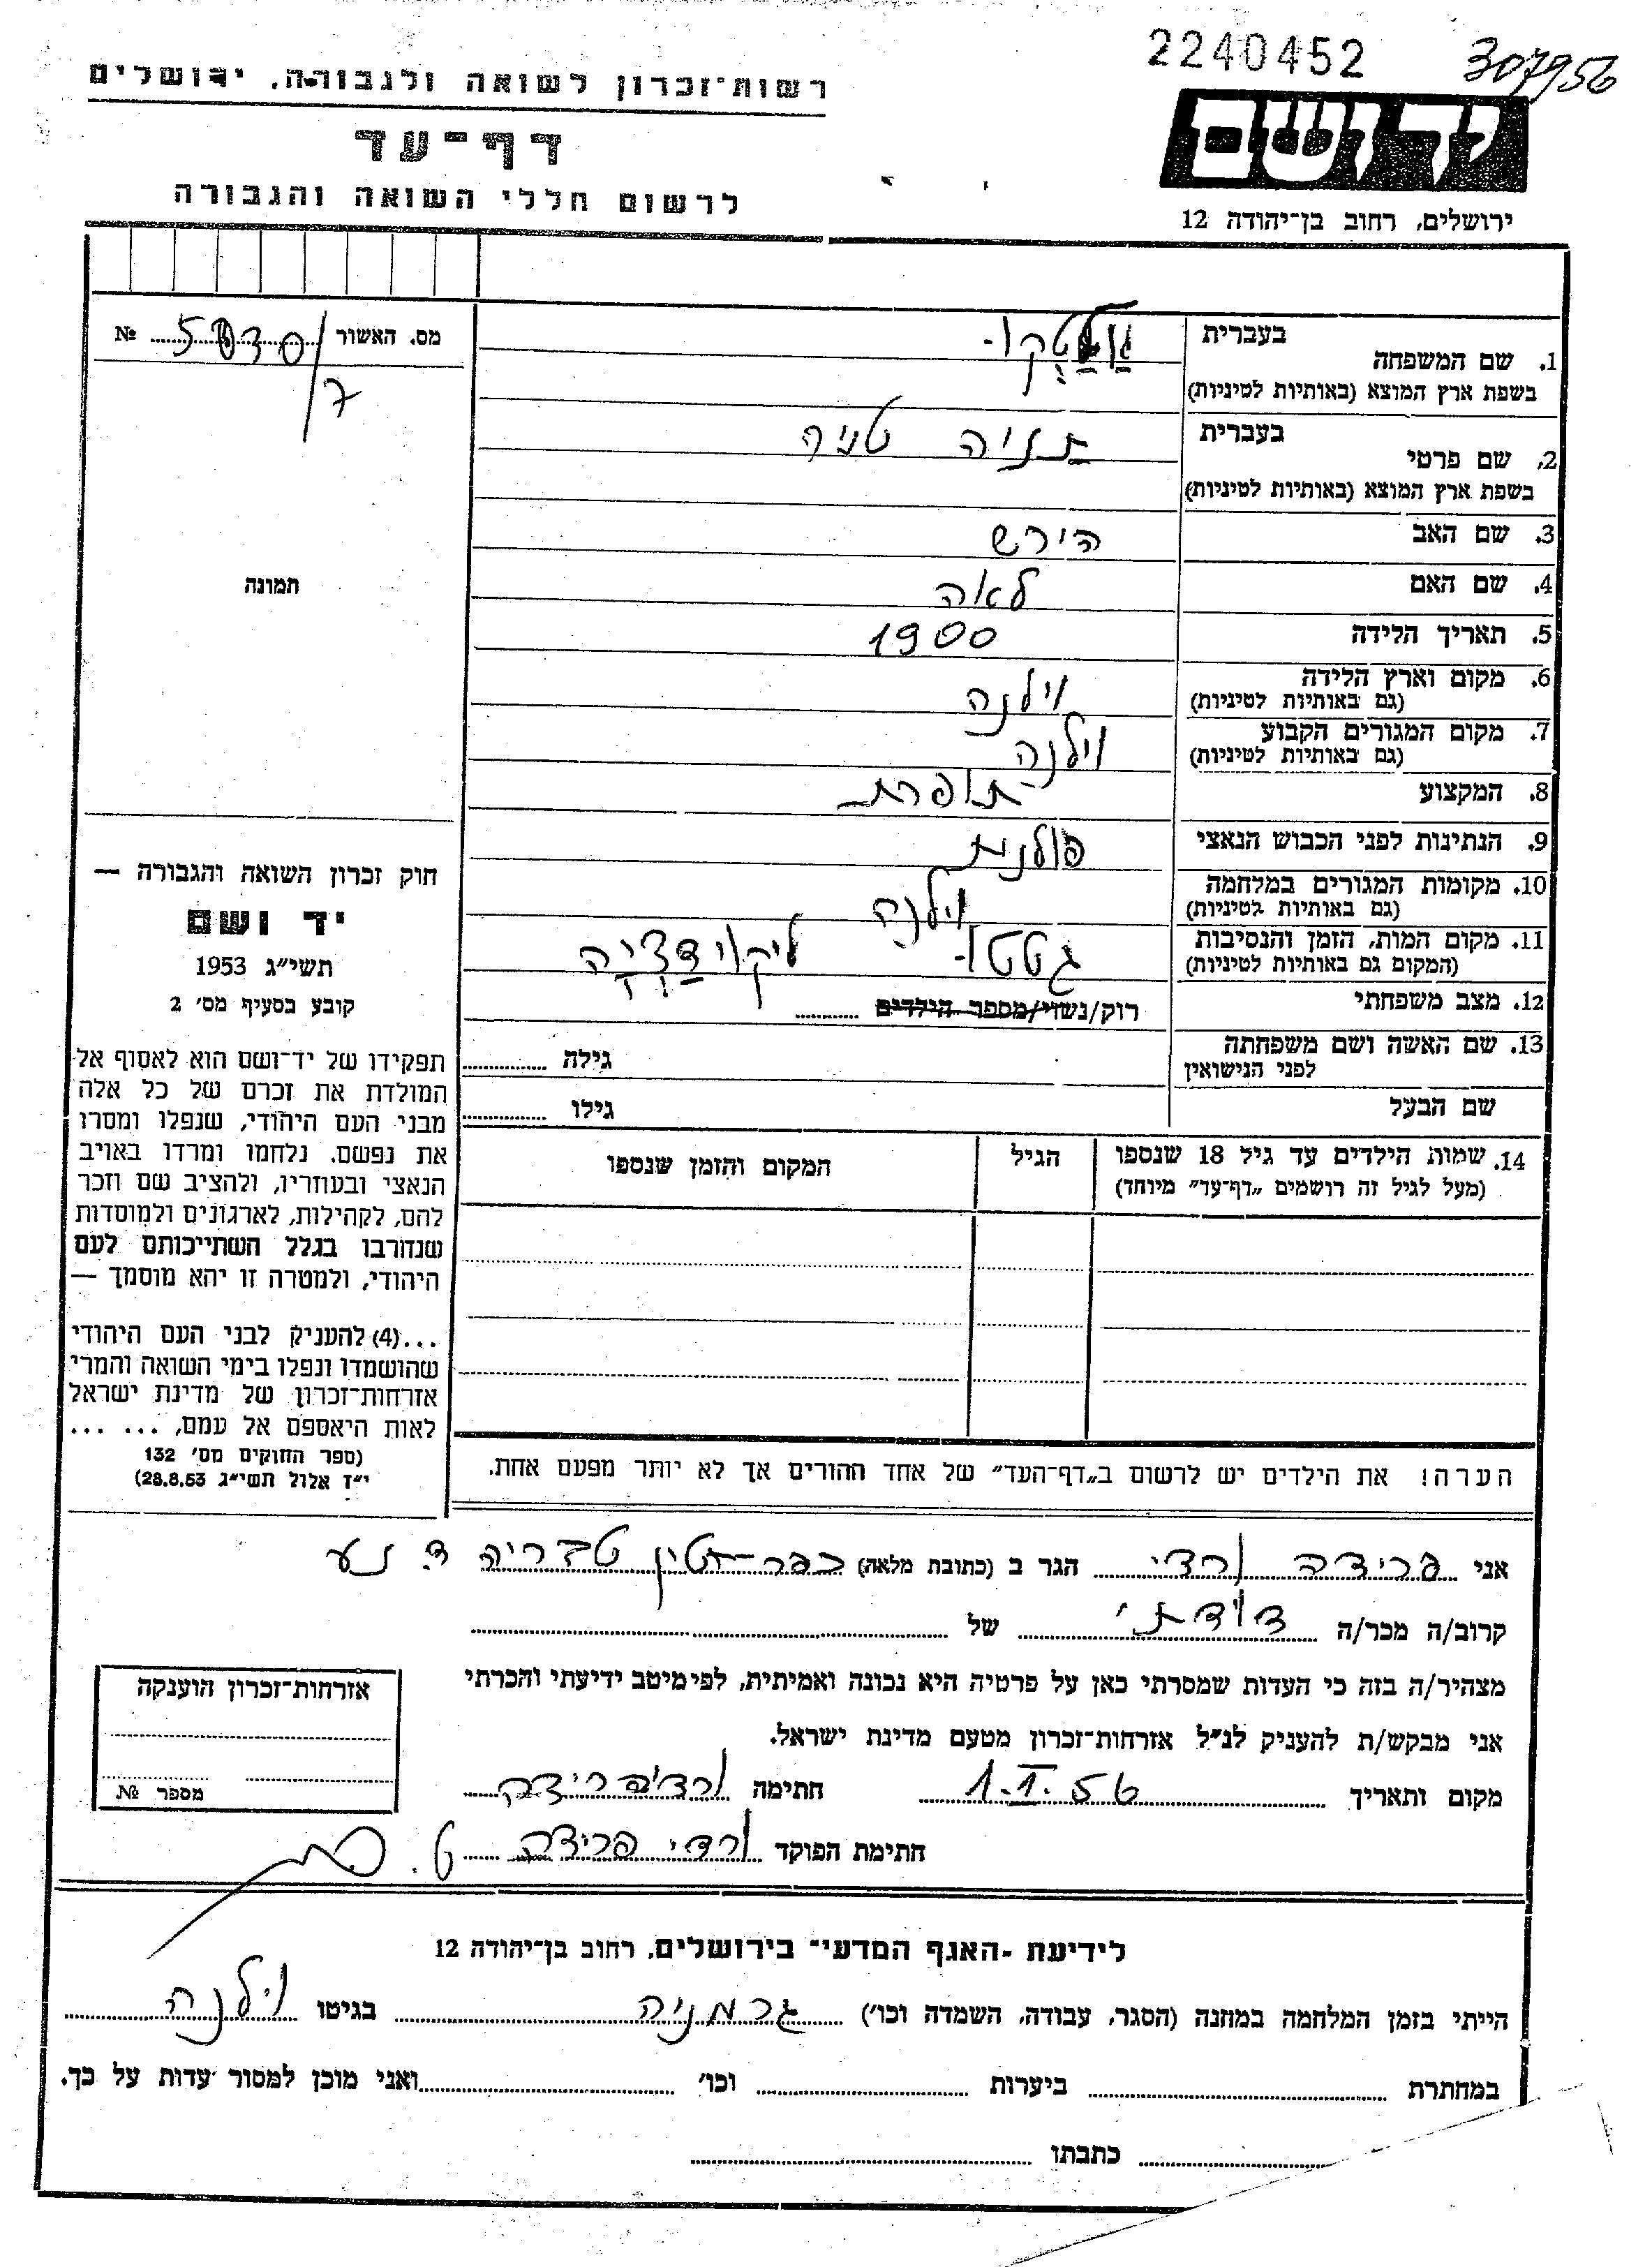 2240452
307956
רשות־זכרון לשואה ולגבורה, ירושלים
יד ושם
דף־עד
לרשום חללי השואה והגבורה
ירושלים, רחוב בן־יהודה 12
מס. האשור № 7/
1. שם המשפחה בעברית
בשפת ארץ המוצא (באותיות לטיניות)
2. שם פרטי בעברית תניה טניה
בשפת ארץ המוצא (באותיות לטיניות)
3. שם האב הירש
4. שם האם לאה
5. תאריך הלידה 1900
6. מקום וארץ הלידה וילנה
(גם באותיות לטיניות)
7. מקום המגורים הקבוע וילנה
(גם באותיות לטיניות)
8. המקצוע תופרת
9. הנתינות לפני הכבוש הנאצי פולנית
10. מקומות המגורים במלחמה וילנה
(גם באותיות לטיניות)
11. מקום המות, הזמן והנסיבות גטטו - ליקוידציה
(המקום גם באותיות לטיניות)
12. מצב משפחתי רוק/נשוי/מספר הילדים
13. שם האשה ושם משפחתה גילה
לפני הנישואין
שם הבעל גילו
14. שמות הילדים עד גיל 18 שנספו הגיל המקום והזמן שנספו
(מעל לגיל זה רושמים „דף־עד” מיוחד)
הערה! את הילדים יש לרשום ב„דף־העד” של אחד ההורים אך לא יותר מפעם אחת.
תמונה
חוק זכרון השואה והגבורה —
יד ושם
תשי״ג 1953
קובע בסעיף מס׳ 2
תפקידו של יד־ושם הוא לאסוף אל
המולדת את זכרם של כל אלה
מבני העם היהודי, שנפלו ומסרו
את נפשם, נלחמו ומרדו באויב
הנאצי ובעוזריו, ולהציב שם וזכר
להם, לקהילות, לארגונים ולמוסדות
שנחרבו בגלל השתייכותם לעם
היהודי, ולמטרה זו יהא מוסמך —
...(4) להעניק לבני העם היהודי
שהושמדו ונפלו בימי השואה והמרי
אזרחות־זכרון של מדינת ישראל
לאות היאספם אל עמם, ... ...
(ספר החוקים מס׳ 132
י״ז אלול תשי״ג 28.8.53)
אני פרידה ורדי הגר ב (כתובת מלאה) כפר־חטין טבריה ד. נע
קרוב/ה מכר/ה דודתי של
מצהיר/ה בזה כי העדות שמסרתי כאן על פרטיה היא נכונה ואמיתית, לפי מיטב ידיעתי והכרתי
אני מבקש/ת להעניק לנ״ל אזרחות־זכרון מטעם מדינת ישראל.
מקום ותאריך 1.I.56 חתימה ורדי פרידה
חתימת הפוקד ורדי פרידה
אזרחות־זכרון הוענקה
מספר №
לידיעת ״האגף המדעי״ בירושלים, רחוב בן־יהודה 12
הייתי בזמן המלחמה במחנה (הסגר, עבודה, השמדה וכו׳) גרמניה בגיטו וילנה
במחתרת ביערות וכו׳ ואני מוכן למסור עדות על כך.
כתבתו